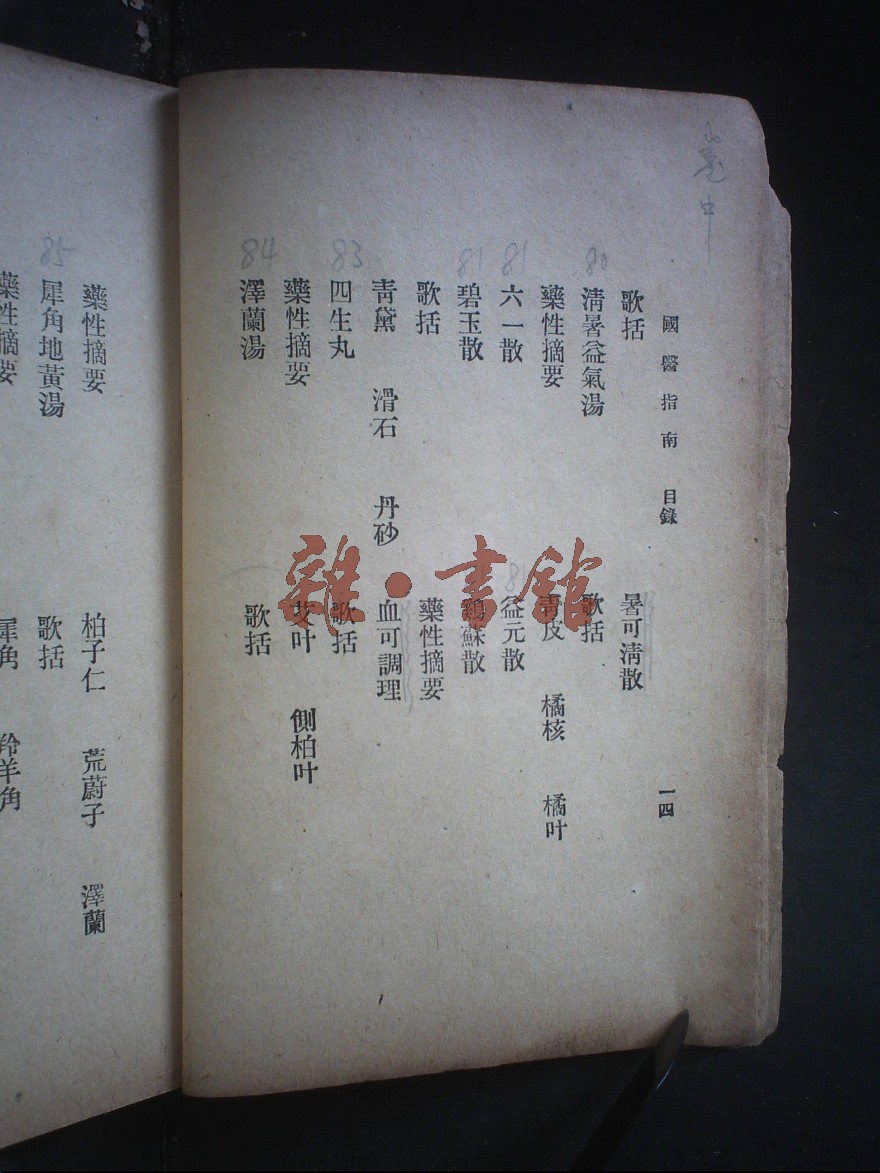 國醫指南 目錄 一四
歌括 暑可淸散
80
淸暑益氣湯 歌括
藥性摘要 靑皮 橘核 橘叶
81
六一散
81
益元散
81
碧玉散 鷄蘇散
歌括 藥性摘要
靑黛 滑石 丹砂 血可調理
83
四生丸 歌括
藥性摘要 艾叶 側柏叶
84
澤蘭湯 歌括
藥性摘要 柏子仁 茺蔚子 澤蘭
85
犀角地黃湯 歌括
藥性摘要 犀角 羚羊角
雜·書館